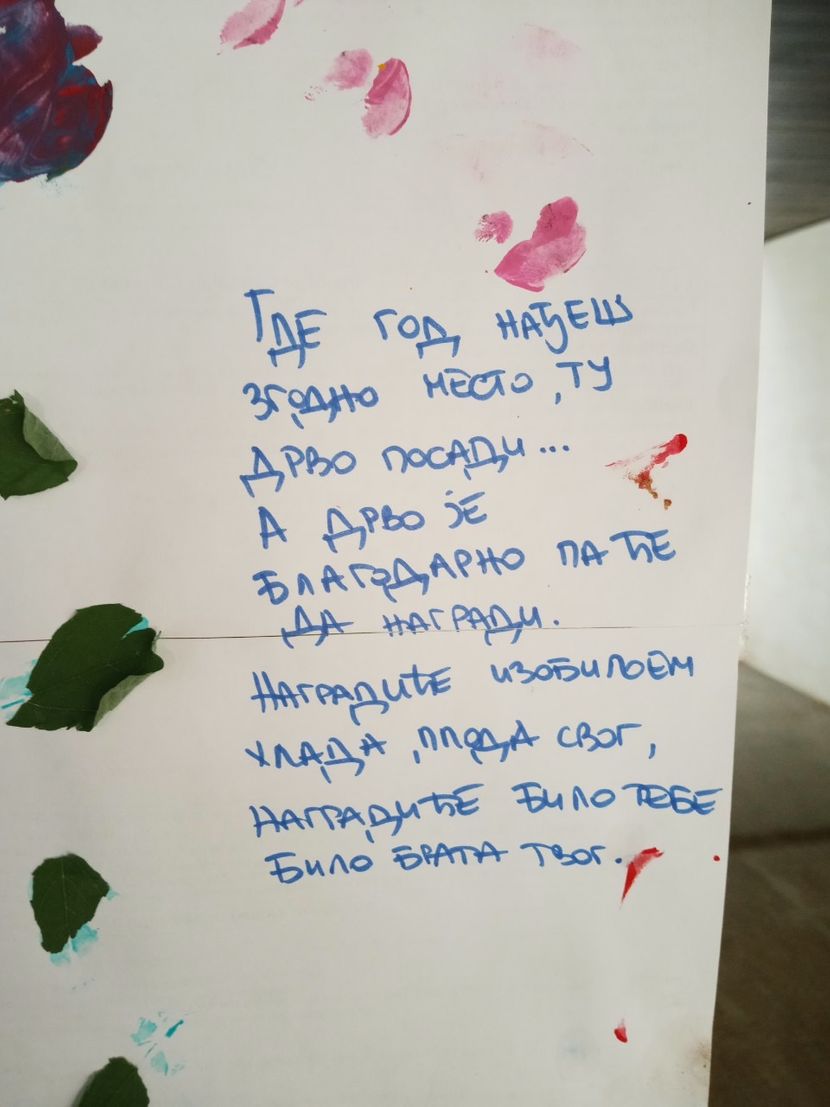 Где год нађеш
згодно место, ту
дрво посади...
А дрво је
благодарно па ће
да награди.
Наградиће изобиљем
хлада, плода свог,
наградиће било тебе
било брата твог.